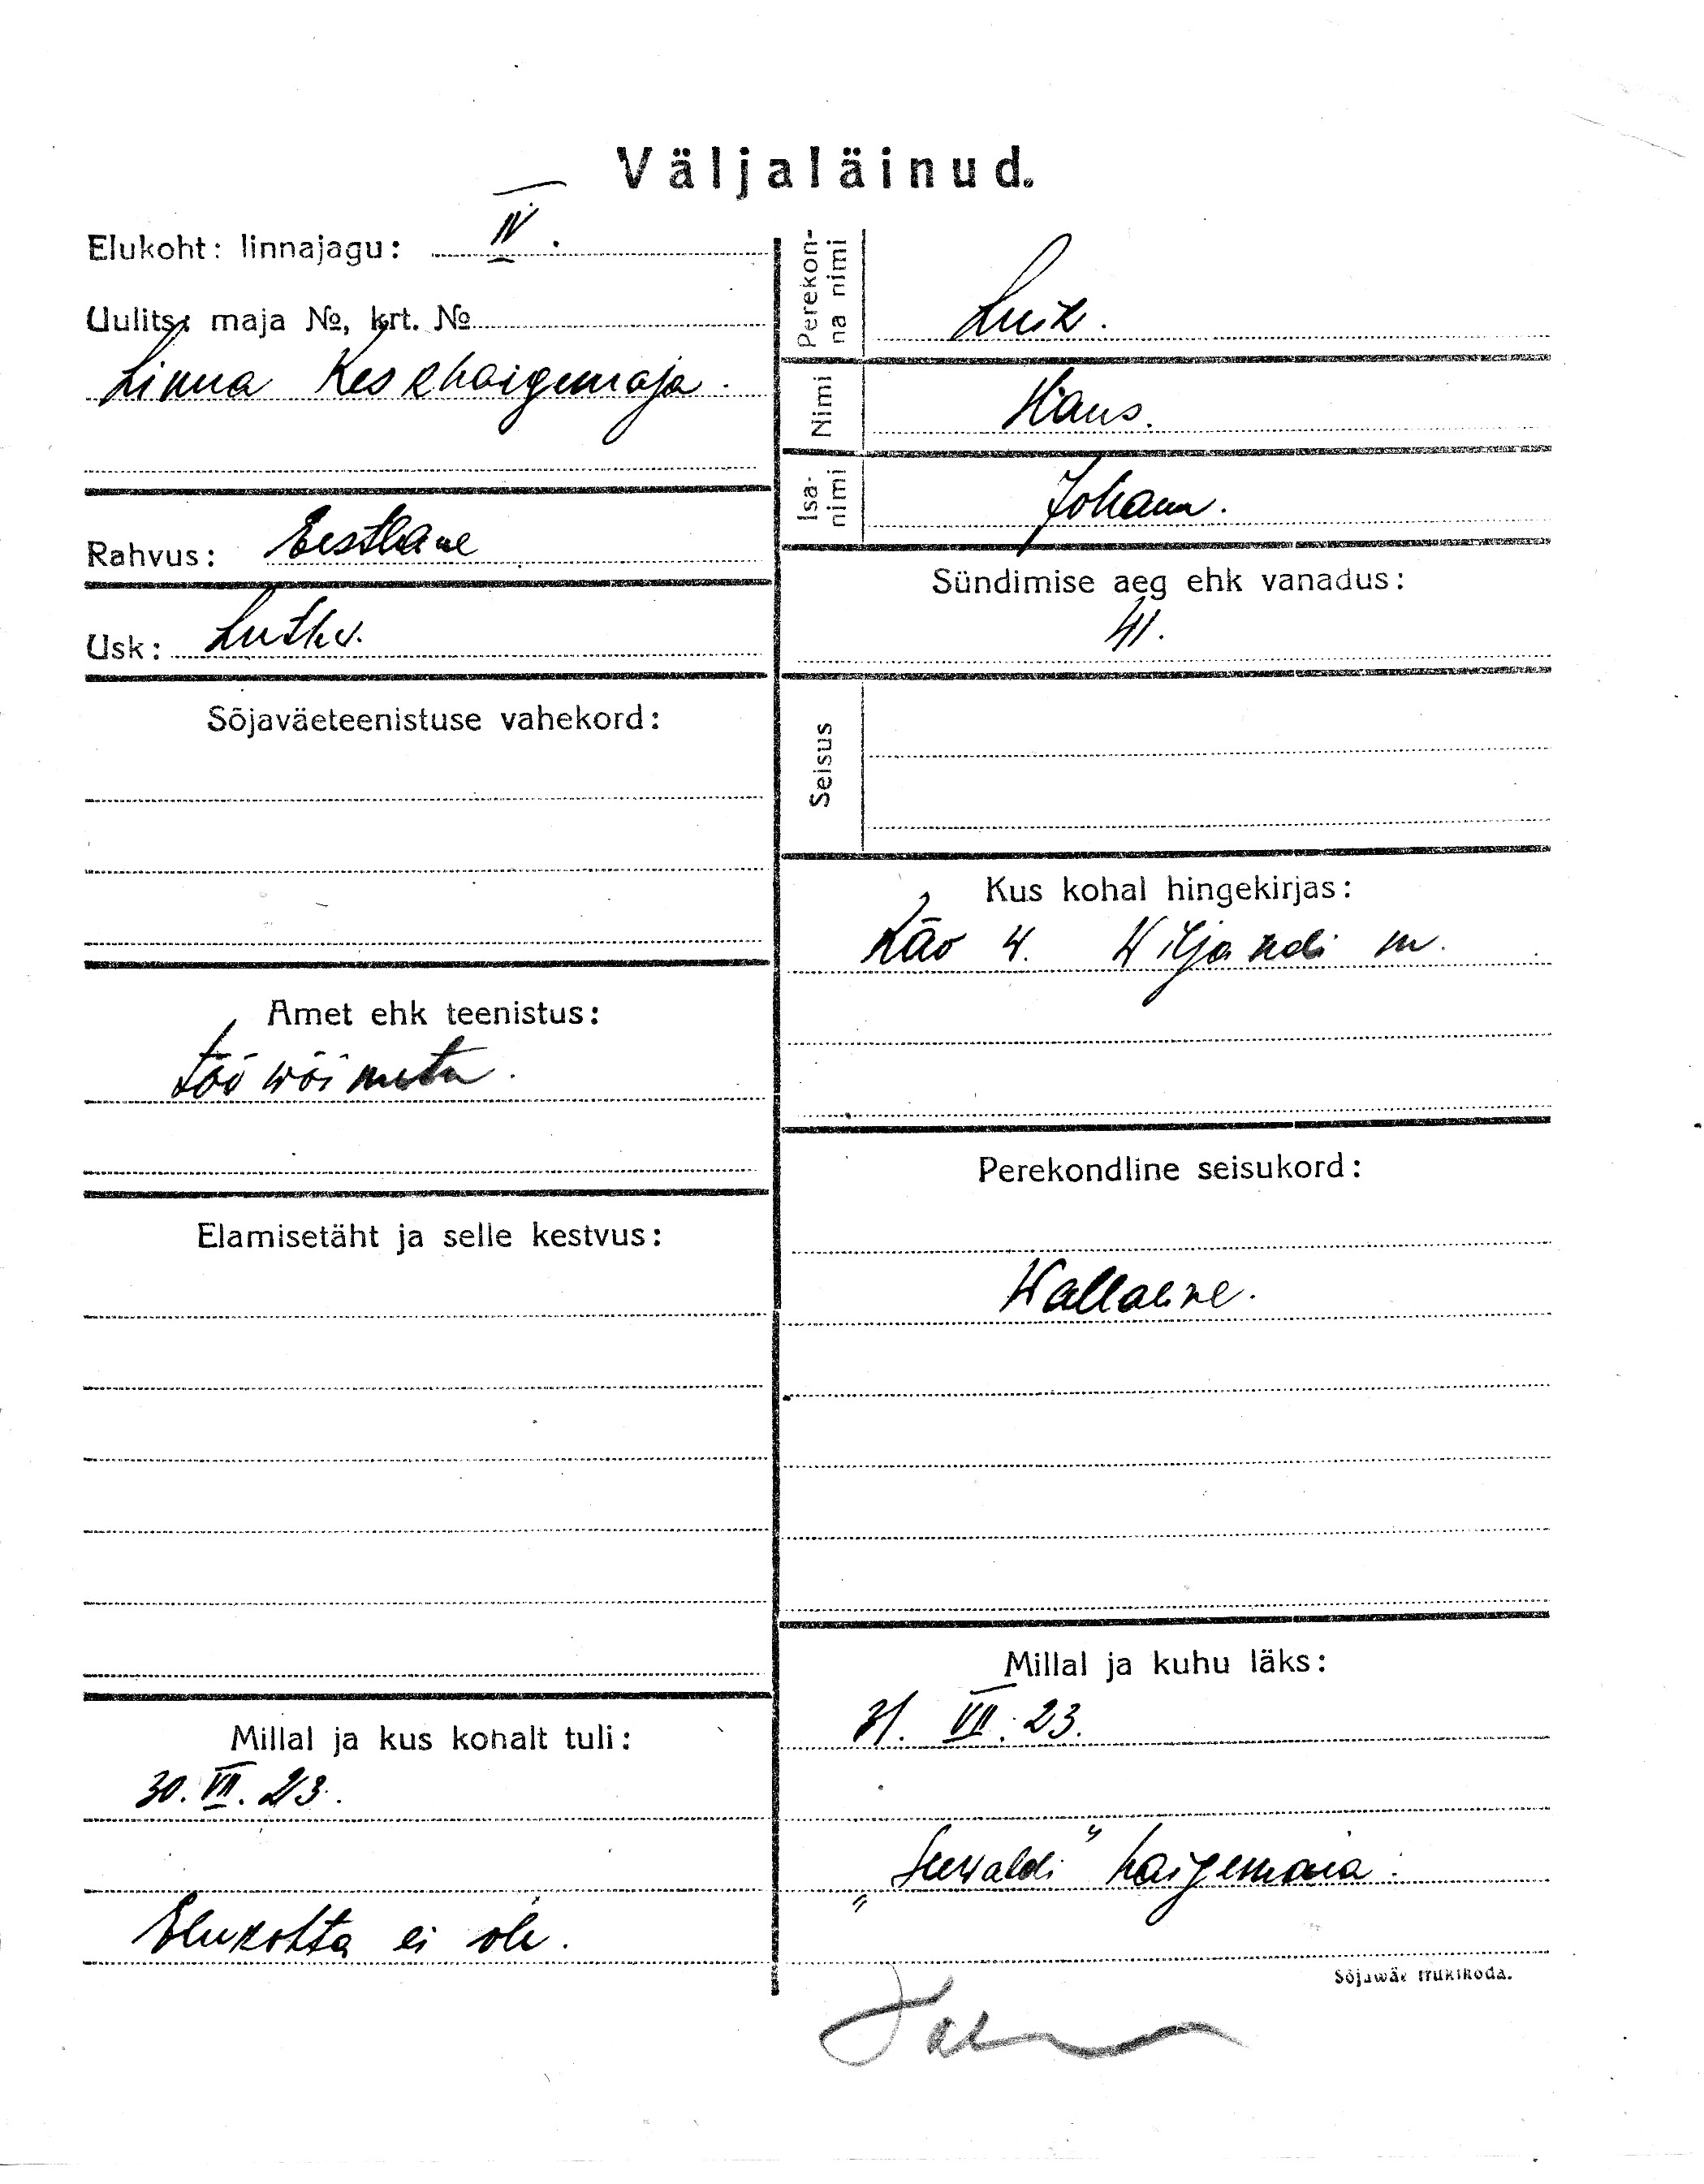 Väljaläinud.
Elukoht: linnajagu: IV.
Uulits: maja №, krt. №
Linna Keskhaigemaja.
Rahvus: Eestlane
Usk: Luth.
Sõjaväeteenistuse vahekord:
Amet ehk teenistus:
töö wõimetu.
Elamisetäht ja selle kestvus:
Millal ja kus kohalt tuli:
30. VII. 23.
Elukohta ei ole.
Perekonna nimi
Luik.
Nimi
Hans.
Isanimi
Johann.
Sündimise aeg ehk vanadus:
41.
Seisus
Kus kohal hingekirjas:
W. Wiljandi m.
Perekondline seisukord:
Wallaline.
Millal ja kuhu läks:
31. VII. 23.
„Seewaldi“ haigemaja.
Sõjawäe trükikoda.